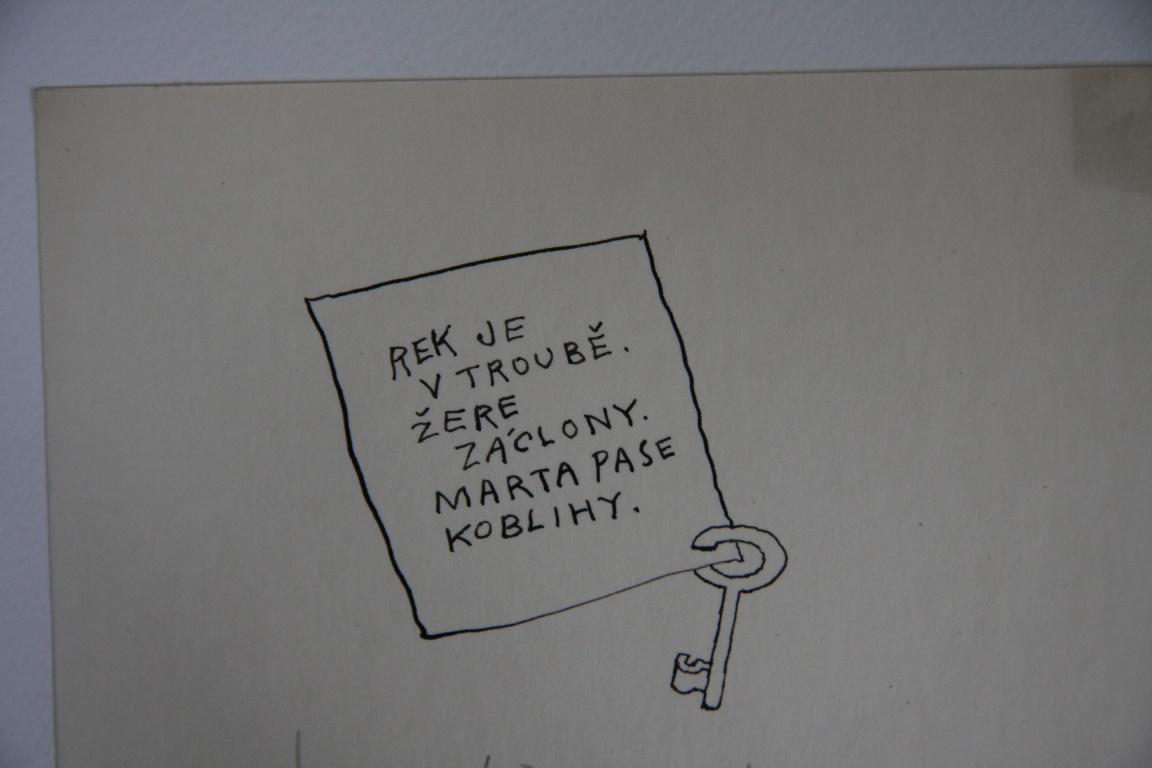 REK JE
V TROUBĚ.
ŽERE
ZÁCLONY.
MARTA PASE
KOBLIHY.